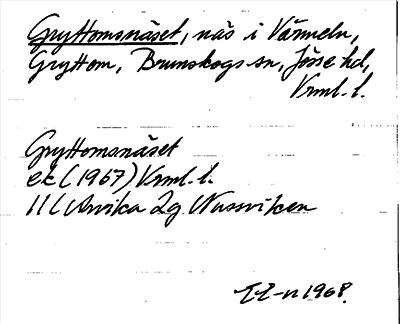 Gryttomsnäset, näs i Värmeln,
Gryttom, Brunskogs sn, Jösse hd,
Vrml. l.
Gryttomsnäset
ek (1967) Vrml. l.
11 C Arvika 2g Nussviken
1968.